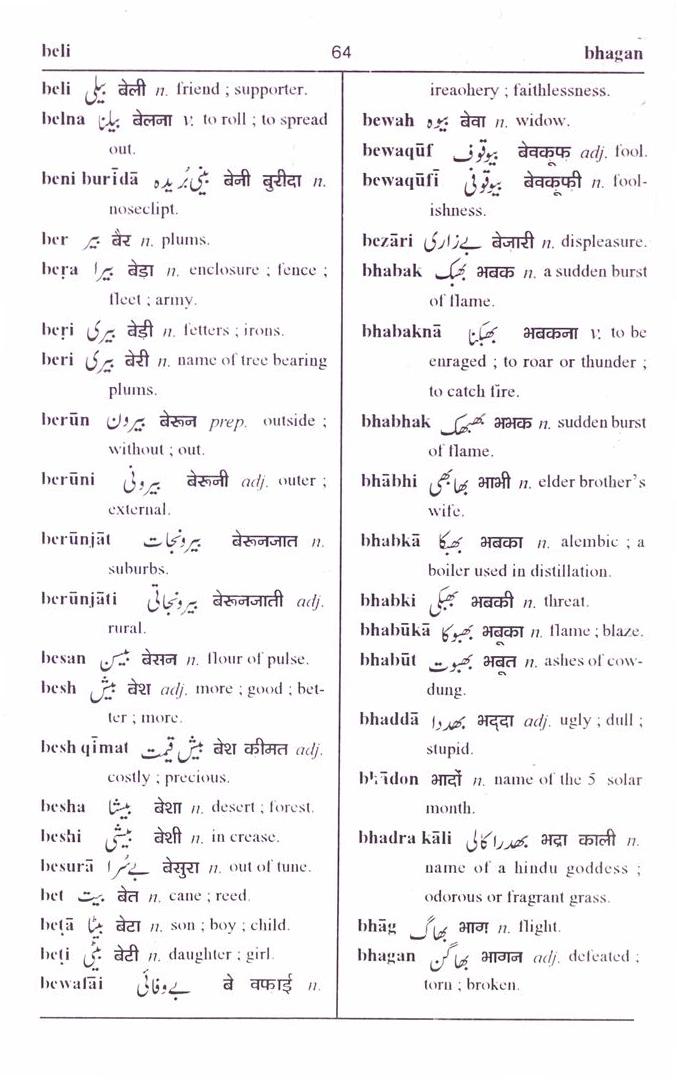 beli
64
bhagan
beli بیلی बेली n. friend ; supporter.
belna بیلنا बेलना v. to roll ; to spread
out.
beni burīdā بینی بُریدہ बेनी बुरीदा n.
noseclipt.
ber بیر बैर n. plums.
beṛa بیرا बेड़ा n. enclosure ; fence ;
fleet ; army.
beṛi بیری बेड़ी n. fetters ; irons.
beri بیری बेरी n. name of tree bearing
plums.
berūn بیرون बेरून prep. outside ;
without ; out.
berūni بیرونی बेरूनी adj. outer ;
external.
berūnjāt بیرونجات बेरूनजात n.
suburbs.
berūnjāti بیرونجاتی बेरूनजाती adj.
rural.
besan بیسن बेसन n. flour of pulse.
besh بیش बेश adj. more ; good ; bet-
ter ; more.
besh qīmat بیش قیمت बेश कीमत adj.
costly ; precious.
besha بیشا बेशा n. desert ; forest.
beshi بیشی बेशी n. in crease.
besurā بےسُرا बेसुरा n. out of tune.
bet بیت बेत n. cane ; reed.
beṭā بیٹا बेटा n. son ; boy ; child.
beṭi بیٹی बेटी n. daughter ; girl.
bewafāi بےوفائی बे वफाई n.
ireaohery ; faithlessness.
bewah بیوہ बेवा n. widow.
bewaqūf بیوقوف बेवकूफ adj. fool.
bewaqūfī بیوقوفی बेवकूफी n. fool-
ishness.
bezāri بےزاری बेज़ारी n. displeasure.
bhabak بھبک भबक n. a sudden burst
of flame.
bhabaknā بھبکنا भबकना v. to be
enraged ; to roar or thunder ;
to catch fire.
bhabhak بھبھک भभक n. sudden burst
of flame.
bhābhi بھابھی भाभी n. elder brother's
wife.
bhabkā بھبکا भबका n. alembic ; a
boiler used in distillation.
bhabki بھبکی भबकी n. threat.
bhabūkā بھبوکا भबूका n. flame ; blaze.
bhabūt بھبوت भबूत n. ashes of cow-
dung.
bhaddā بھددا भद्दा adj. ugly ; dull ;
stupid.
bhādon भादों n. name of the 5 solar
month.
bhadra kāli بھدرا کالی भद्रा काली n.
name of a hindu goddess ;
odorous or fragrant grass.
bhāg بھاگ भाग n. flight.
bhagan بھاگن भागन adj. defeated ;
torn ; broken.